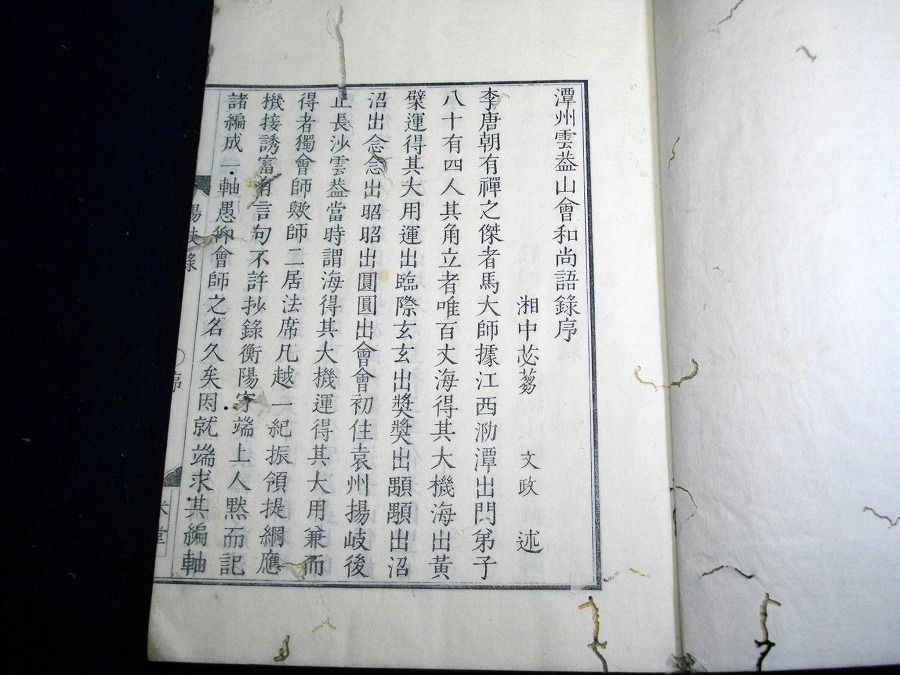 潭州雲葢山會和尚語錄序
湘中苾蒭 文政 述
李唐朝有禪之傑者馬大師據江西泐潭出門弟子
八十有四人其角立者唯百丈海得其大機海出黃
檗運得其大用運出臨際玄玄出奬奬出顒顒出沼
沼出念念出昭昭出圓圓出會會初住袁州揚岐後
止長沙雲葢當時謂海得其大機運得其大用兼而
得者獨會師歟師二居法席凡越一紀振領提綱應
機接誘富有言句不許抄錄衡陽守端上人默而記
諸編成一軸愚仰會師之名久矣因就端求其編軸